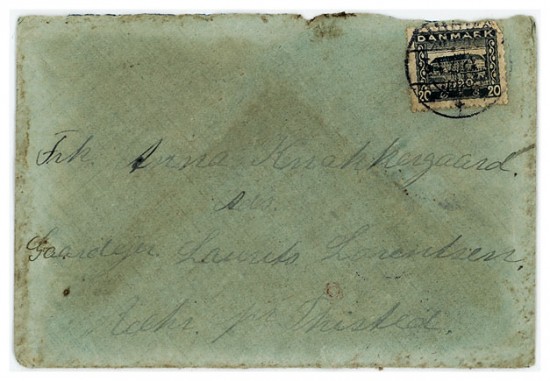 DANMARK
20 20
Frk. Anna Knakkergaard.
Gaardejer Laurits Lorentsen,
pr Thisted.